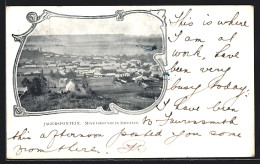 This is where
I am at
work, have
been very
busy today,
I have been
to Fauresmith
JAGERSFONTEIN.
this afternoon posted you some
from there